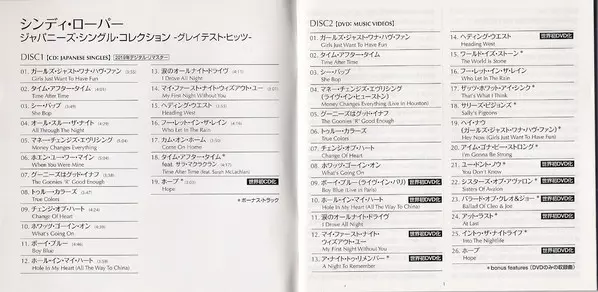 シンディ・ローパー
ジャパニーズ・シングル・コレクション -グレイテスト・ヒッツ-
DISC1 [CD: JAPANESE SINGLES] 2019年デジタル・リマスター
01. ガールズ・ジャスト・ワナ・ハヴ・ファン
Girls Just Want To Have Fun
02. タイム・アフター・タイム
Time After Time
03. シー・バップ
She Bop
04. オール・スルー・ザ・ナイト
All Through The Night
05. マネー・チェンジズ・エヴリシング
Money Changes Everything
06. ホエン・ユー・ワー・マイン
When You Were Mine
07. グーニーズはグッドイナフ
The Goonies 'R' Good Enough
08. トゥルー・カラーズ
True Colors
09. チェンジ・オブ・ハート
Change Of Heart
10. ホワッツ・ゴーイン・オン
What's Going On
11. ボーイ・ブルー
Boy Blue
12. ホール・イン・マイ・ハート
Hole In My Heart (All The Way To China)
13. 涙のオールナイト・ドライヴ
I Drove All Night
14. マイ・ファースト・ナイト・ウィズアウト・ユー
My First Night Without You
15. ヘディング・ウエスト
Heading West
16. フー・レット・イン・ザ・レイン
Who Let In The Rain
17. カム・オン・ホーム
Come On Home
18. タイム・アフター・タイム*
feat. サラ・マクラクラン
Time After Time (feat. Sarah McLachlan)
19. ホープ* 世界初CD化
Hope
*ボーナストラック
DISC2 [DVD: MUSIC VIDEOS]
01. ガールズ・ジャスト・ワナ・ハヴ・ファン
Girls Just Want To Have Fun
02. タイム・アフター・タイム
Time After Time
03. シー・バップ
She Bop
04. マネー・チェンジズ・エヴリシング
(ライヴ・イン・ヒューストン)
Money Changes Everything (Live in Houston)
05. グーニーズはグッドイナフ
The Goonies 'R' Good Enough
06. トゥルー・カラーズ
True Colors
07. チェンジ・オブ・ハート
Change Of Heart
08. ホワッツ・ゴーイン・オン
What's Going On
09. ボーイ・ブルー(ライヴ・イン・パリ) 世界初DVD化
Boy Blue (Live in Paris)
10. ホール・イン・マイ・ハート 世界初DVD化
Hole In My Heart (All The Way To China)
11. 涙のオールナイト・ドライヴ
I Drove All Night
12. マイ・ファースト・ナイト・
ウィズアウト・ユー
My First Night Without You
13. ア・ナイト・トゥ・リメンバー 世界初DVD化
A Night To Remember
14. ヘディング・ウエスト 世界初DVD化
Heading West
15. ワールド・イズ・ストーン*
The World Is Stone
16. フー・レット・イン・ザ・レイン
Who Let In The Rain
17. ザッツ・ホワット・アイ・シンク*
That's What I Think
18. サリーズ・ピジョンズ*
Sally's Pigeons
19. ヘイ・ナウ
(ガールズ・ジャスト・ワナ・ハヴ・ファン)*
Hey Now (Girls Just Want To Have Fun)
20. アイム・ゴナ・ビー・ストロング*
I'm Gonna Be Strong
21. ユー・ドント・ノウ* 世界初DVD化
You Don't Know
22. シスターズ・オブ・アヴァロン* 世界初DVD化
Sisters Of Avalon
23. バラード・オブ・クレオ&ジョー* 世界初DVD化
Ballad Of Cleo & Joe
24. アット・ラスト*
At Last
25. イントゥ・ザ・ナイトライフ*
Into The Nightlife
26. ホープ 世界初DVD化
Hope
*bonus features (DVDのみの収録曲)